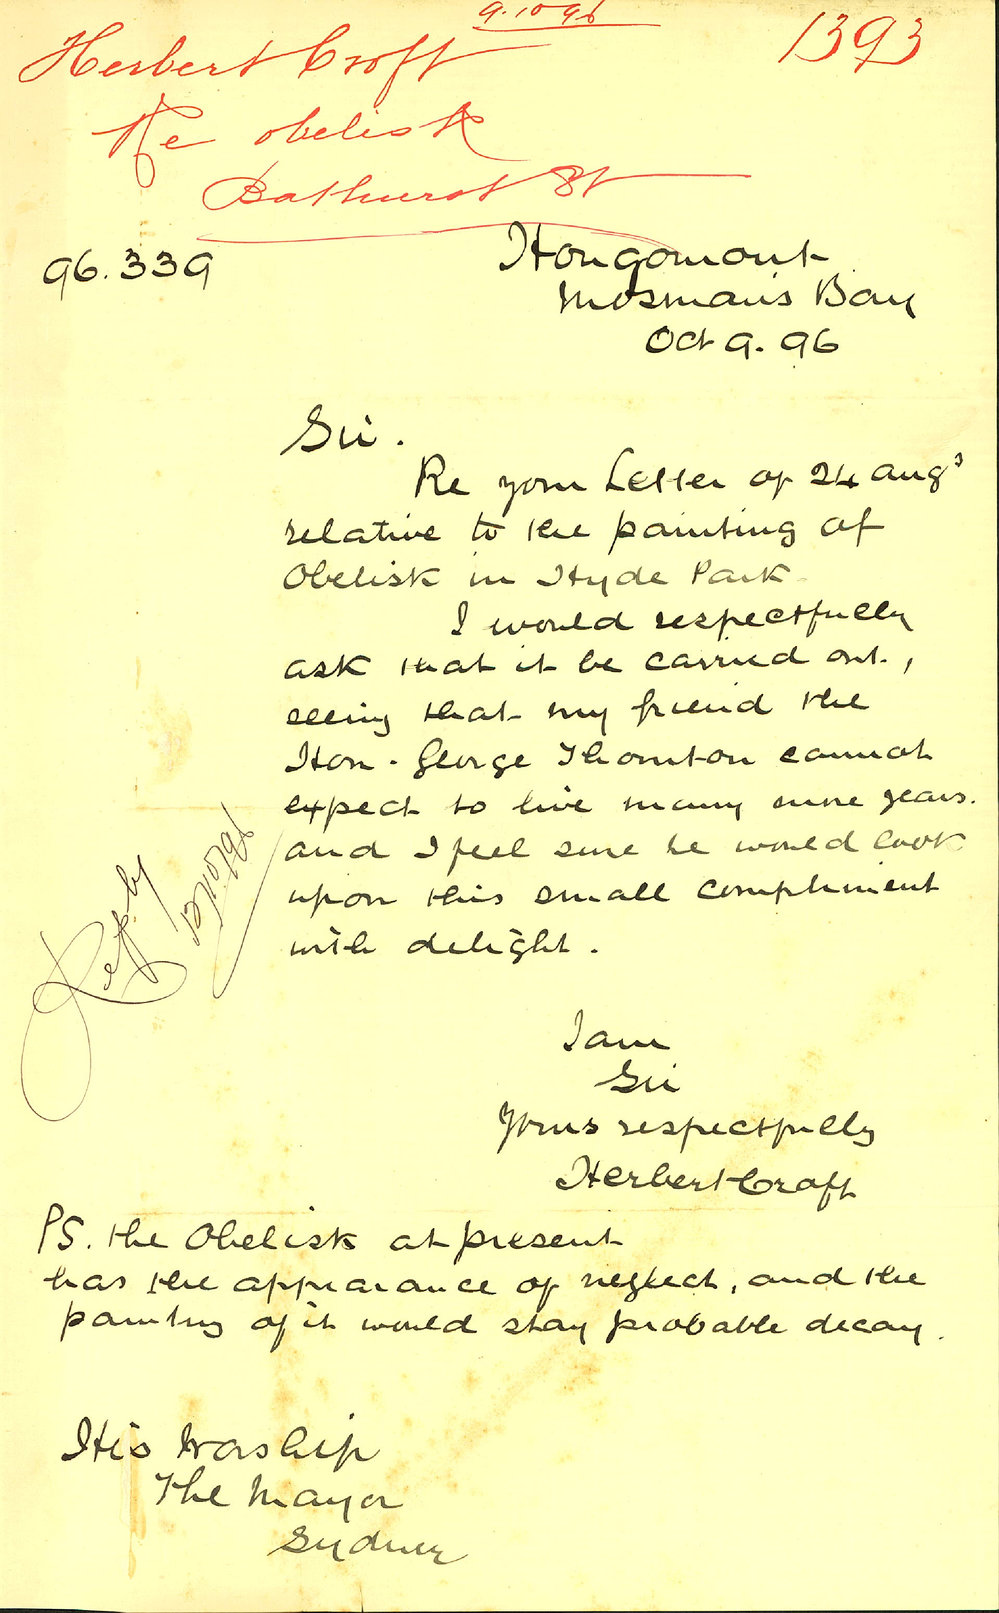 9.10.96
1393
Herbert Croft
Re obelisk
Bathurst St
96.339
Hougomont
Mosman's Bay
Oct 9. 96
Sir.
Re your Letter of 24 Augs
relative to the painting of
Obelisk in Hyde Park
I would respectfully
ask that it be carried out,
seeing that my friend the
Hon. George Thornton cannot
expect to live many more years.
and I feel sure he would look
upon this small compliment
with delight.
Repd. by
12/10/96
I am
Sir
Yours respectfully
Herbert Croft
PS. the Obelisk at present
has the appearance of neglect, and the
painting of it would stay probable decay.
His Worship
The Mayor
Sydney